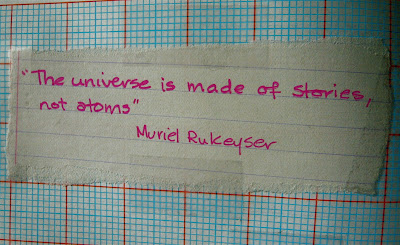 "The universe is made of stories,
not atoms"
Muriel Rukeyser